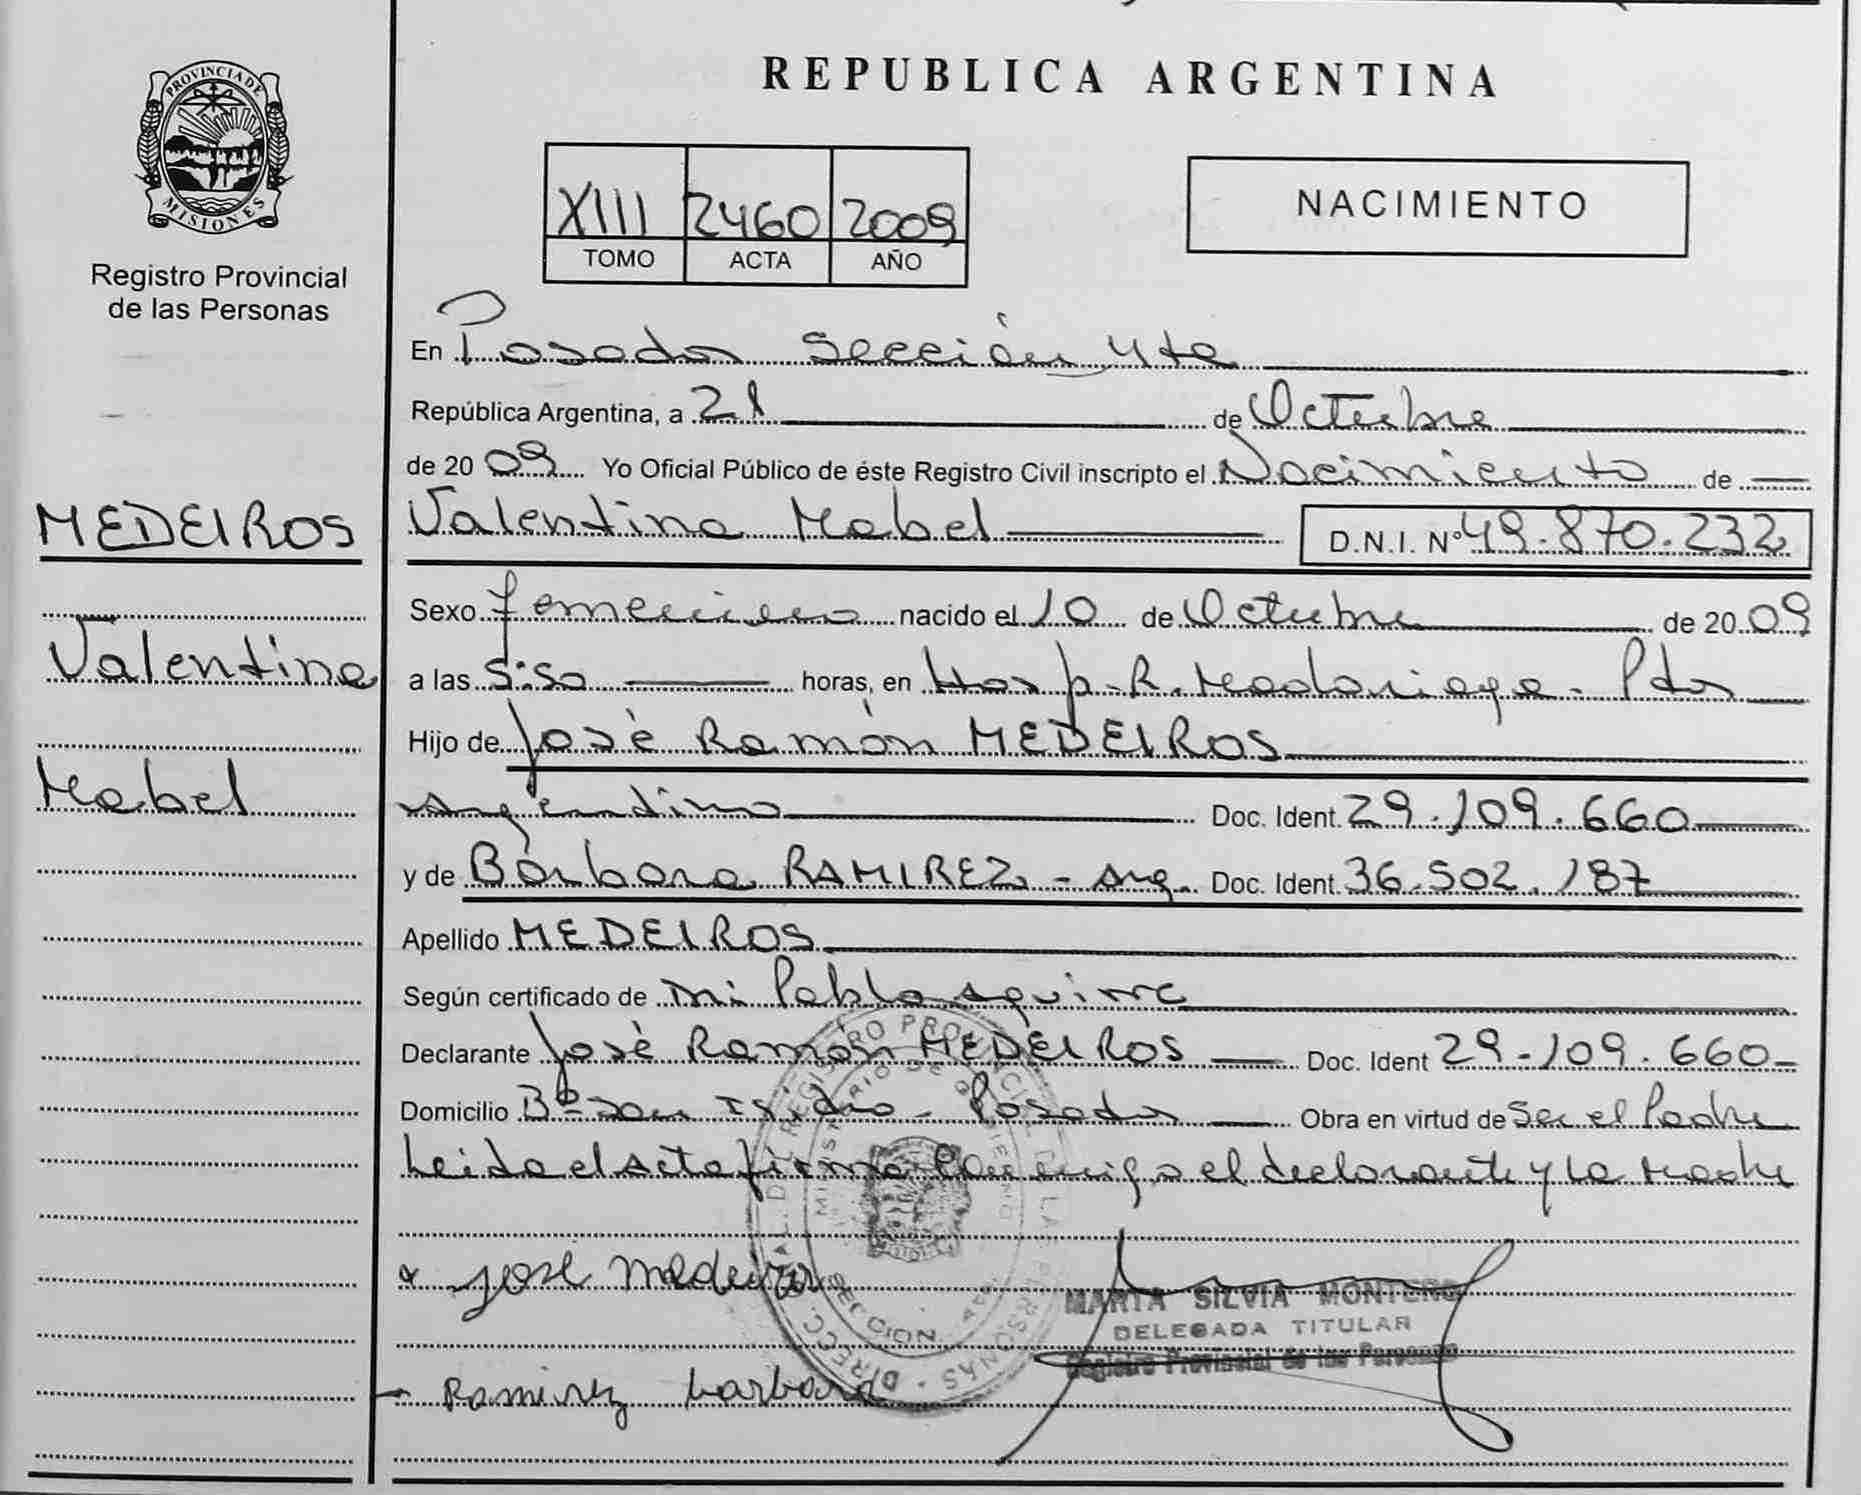 PROVINCIA DE
MISIONES
Registro Provincial
de las Personas
MEDEIROS
Valentina
Mabel
REPUBLICA ARGENTINA
XIII 2460 2009
TOMO ACTA AÑO
NACIMIENTO
En Posadas Sección 4ta
República Argentina, a 21 de Octubre
de 2009 Yo Oficial Público de éste Registro Civil inscripto el Nacimiento de
Valentina Mabel D.N.I. Nº 49.870.232
Sexo femenino nacido el 10 de Octubre de 2009
a las 5:50 horas, en Hosp. R. Madariaga - Pdas
Hijo de José Ramón MEDEIROS
Argentino Doc. Ident. 29.109.660
y de Bárbara RAMIREZ - Arg. Doc. Ident. 36.502.187
Apellido MEDEIROS
Según certificado de Pablo Aguirre
Declarante José Ramón MEDEIROS Doc. Ident 29.109.660
Domicilio Bº San Isidro - Posadas Obra en virtud de Ser el Padre
Leida el Acta firma Conmigo el declarante y la Madre
José Medeiros
MARTA SILVIA MONTERO
DELEGADA TITULAR
Registro Provincial de las Personas
Ramirez barbara